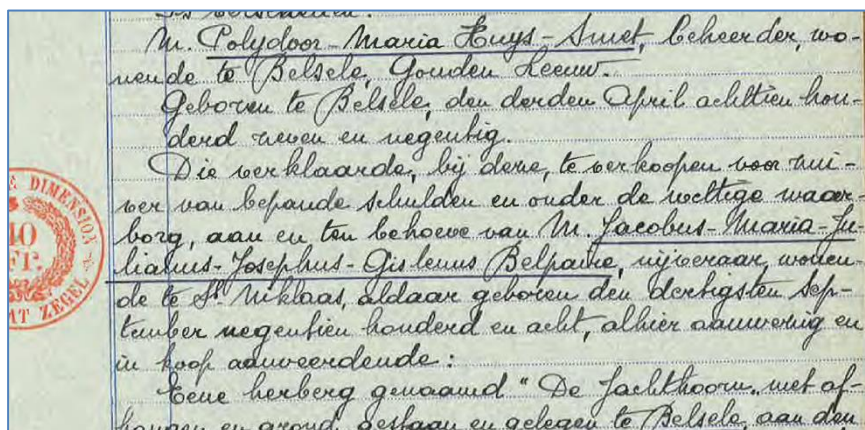 Is verschenen:
M. Polydoor-Maria Huys-Smet, beheerder, wo-
nende te Belsele, Gouden Leeuw.
Geboren te Belsele, den derden April achttien hon-
derd zeven en negentig.
Die verklaarde, bij deze, te verkoopen voor zui-
ver van bepande schulden en onder de wettige waar-
borg, aan en ten behoeve van M. Jacobus-Maria-Ju-
lianus-Josephus-Gislenus Belpaire, nijveraar, wonen-
de te St. Niklaas, aldaar geboren den dertigsten Sep-
tember negentien honderd en acht, alhier aanwezig en
in koop aanveerdende:
Eene herberg genaamd "De Jachthoorn", met af-
hangen en grond, gestaan en gelegen te Belsele, aan den
DIMENSION
40
Fr.
ZEGEL